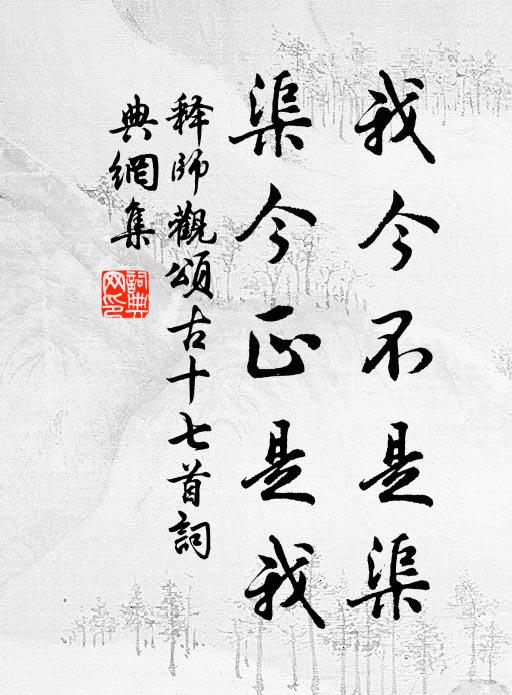 我今不是渠
渠今正是我
释師觀頌古十七首詞
典網集
詞典網印